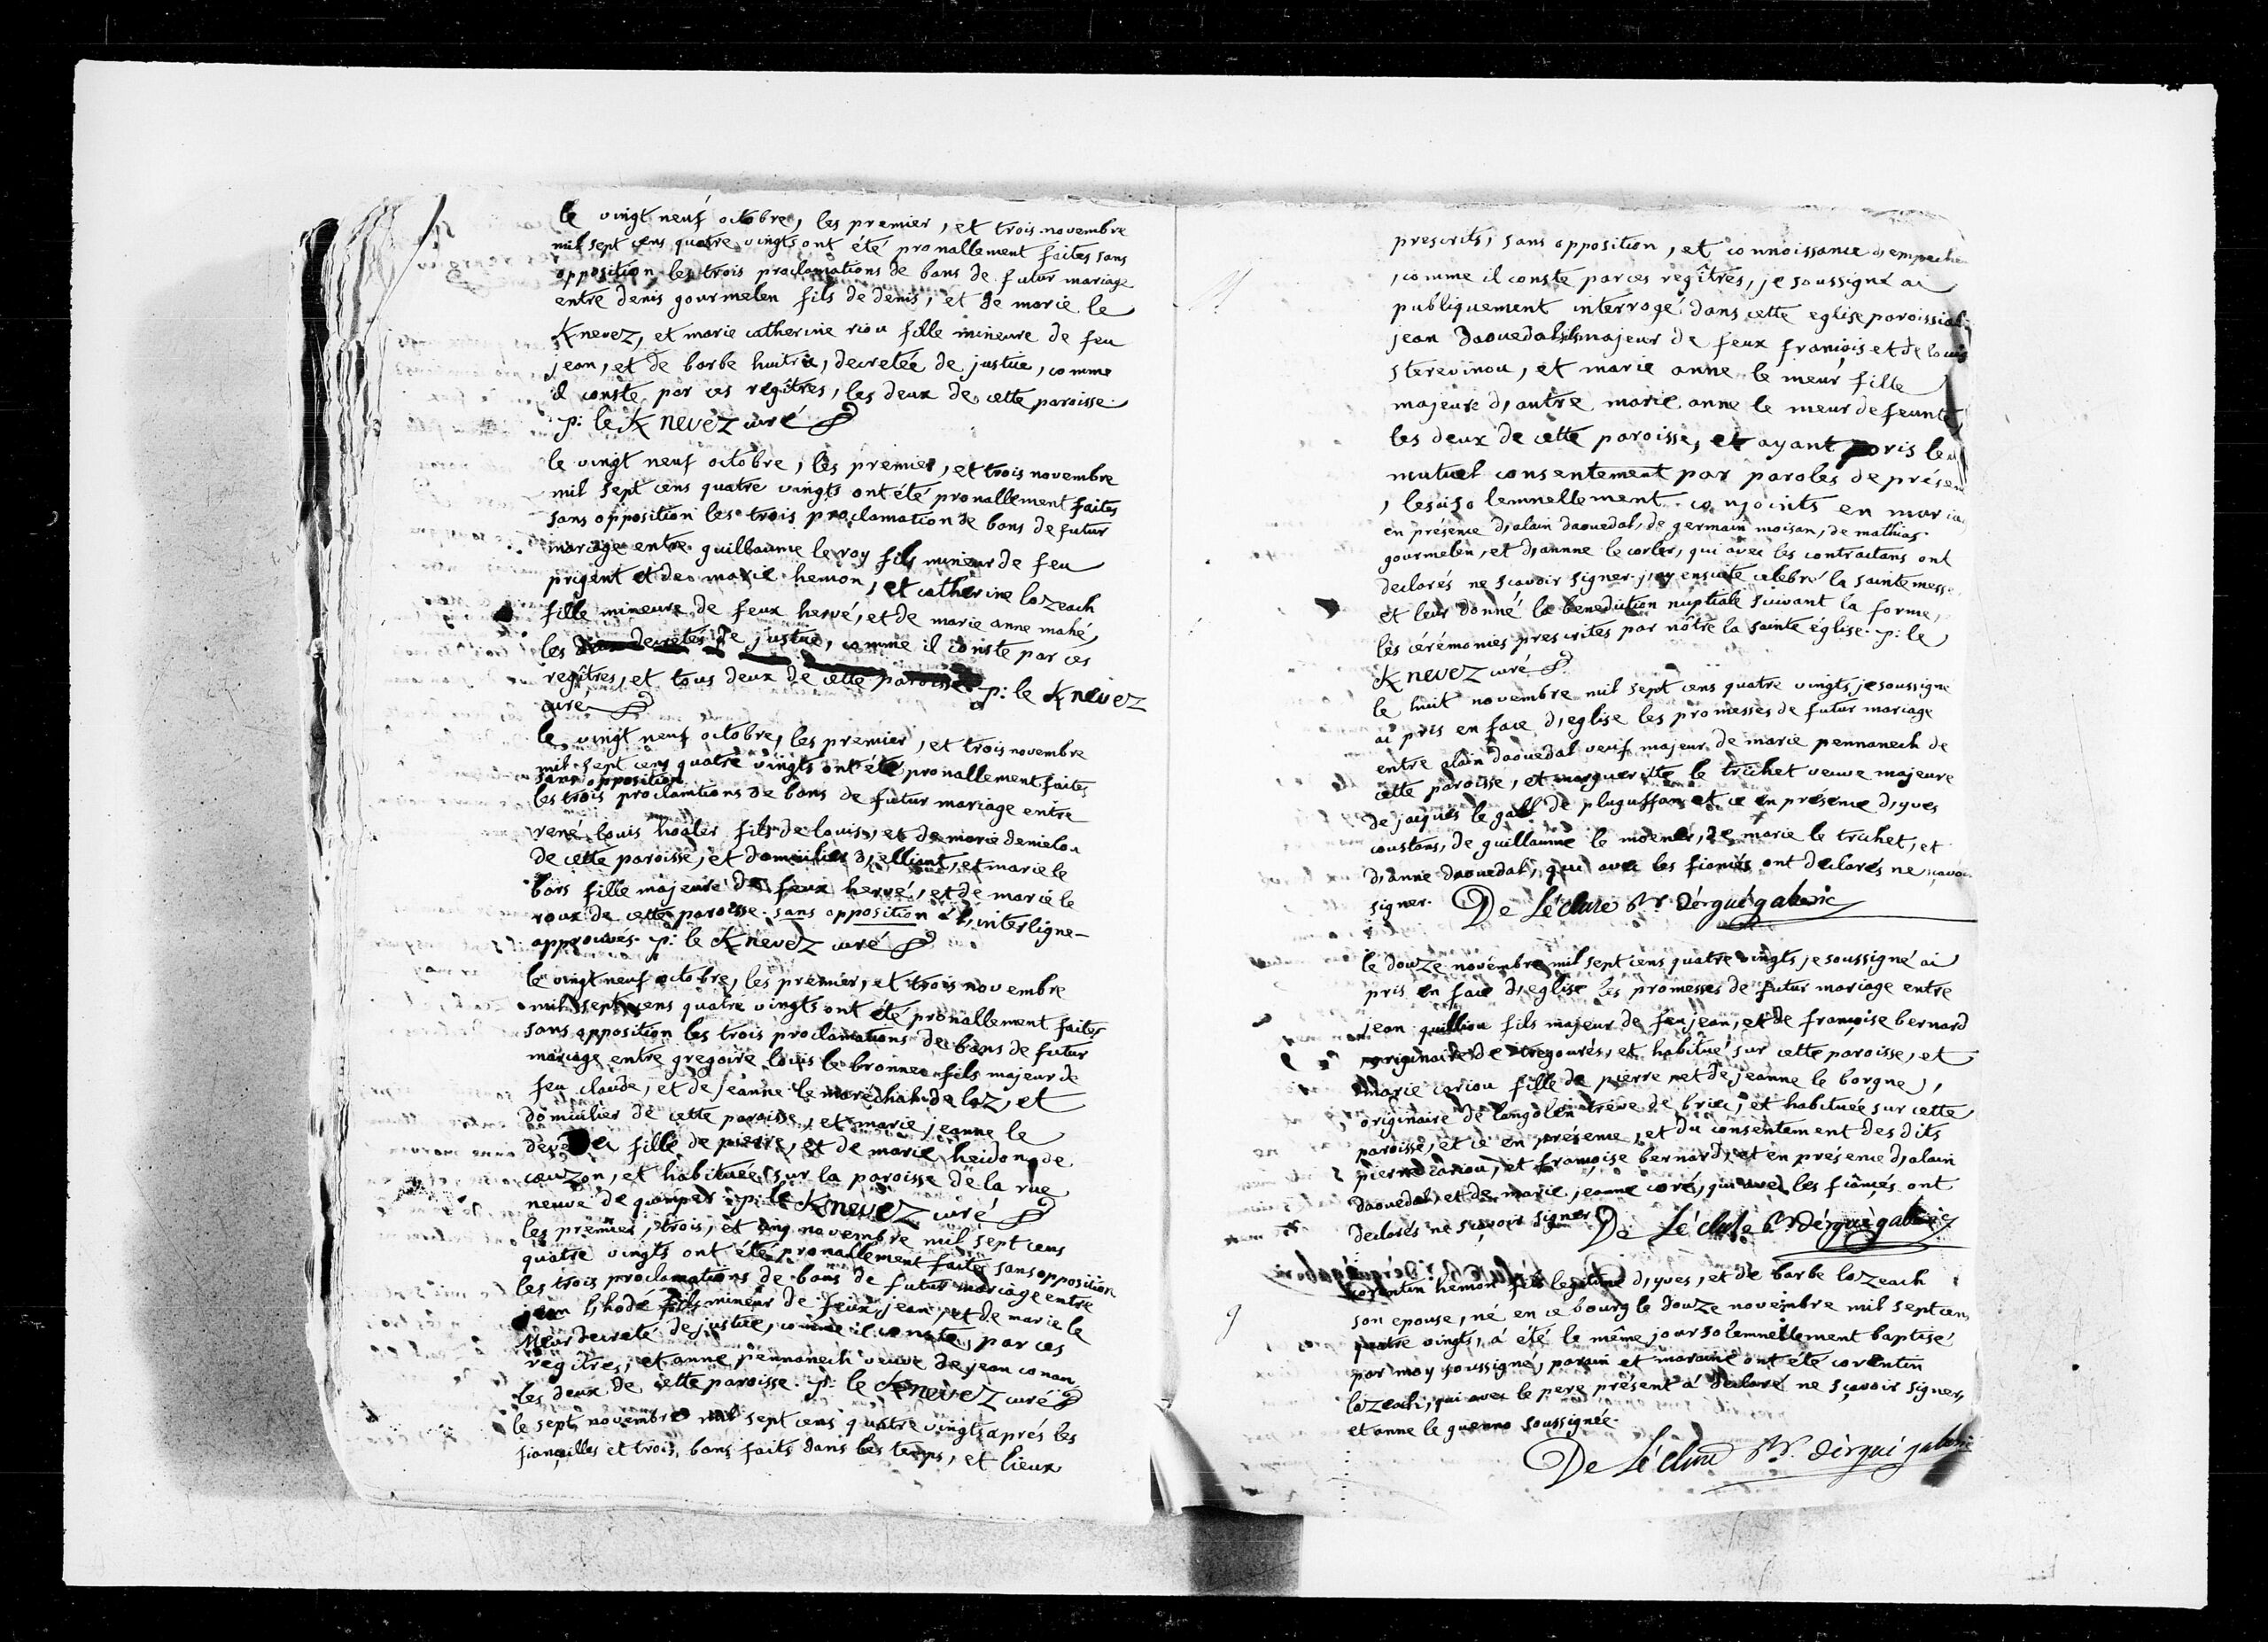 le vingt neuf octobre, les premier, et trois novembre
mil sept cens quatre vingts ont été pronallement faites sans
opposition les trois proclamations de bans de futur mariage
entre denis gourmelen fils de denis, et de marie le
Knevez, et marie catherine riou fille mineure de feu
jean, et de barbe huitric, decretée de justice, comme
il conste par ces regîtres, les deux de cette paroisse.
p: le Knevez curé
le vingt neuf octobre, les premier, et trois novembre
mil sept cens quatre vingts ont été pronallement faites
sans opposition les trois proclamation de bans de futur
mariage entre guillaume le roy fils mineur de feu
prigent et de marie hemon, et catherine lozeach
fille mineure de feux hervé, et de marie anne mahé
les decretés de justice, comme il conste par ces
regîtres, et tous deux de cette paroisse. p: le Knevez
curé
le vingt neuf octobre, les premier, et trois novembre
mil sept cens quatre vingts ont été pronallement faites
sans opposition
les trois proclamtions de bans de futur mariage entre
rené louis hoaler fils de louis, et de marie denielou
de cette paroisse, et domicilier d'elliant, et marie le
bars fille majeure de feux hervé, et de marie le
roux de cette paroisse. sans opposition à l'interligne
approuvés. p: le Knevez curé
le vingt neuf octobre, les premier, et trois novembre
mil sept cens quatre vingts ont été pronallement faites
sans opposition les trois proclamations de bans de futur
mariage entre gregoire louis le bronnec fils majeur de
feu claude, et de jeanne le maréchal de laz, et
domicilier de cette paroisse, et marie jeanne le
fille de pierre, et de marie heidon de
cauzon, et habituée sur la paroisse de la rue
neuve de quimper. p: le Knevez curé
les premier, trois, et cinq novembre mil sept cens
quatre vingts ont été pronallement faites sans opposition
les trois proclamations de bans de futur mariage entre
jean l'hodé fils mineur de feux jean, et de marie le
Meur decreté de justice, comme il conste par ces
regîtres, et anne pennanech veuve de jean conan
les deux de cette paroisse. p: le Knevez curé
le sept novembre mil sept cens quatre vingts aprés les
fiançailles et trois bans faits dans les temps, et lieux
prescrits, sans opposition, et connoissance d'empeche
, comme il conste par ces regîtres, je soussigné ai
publiquement interrogé dans cette eglise paroissial
jean Daouedal fils majeur de feux francois et de louis
sterevinou, et marie anne le meur fille
majeure d'autre marie anne le meur defeunte
les deux de cette paroisse, et ayant pris leu
mutuel consentement par paroles de présen
, les ai solemnellement conjoints en maria
en présence d'alain daouedal, de germain moisan, de mathias
gourmelen, et d'annne le corler, qui avec les contractans ont
declarés ne scavoir signer. j'ay ensuite celebré la sainte messe
et leur donné la benediction nuptiale suivant la forme,
les cérémonies prescrites par nôtre la sainte église. p: le
Knevez curé
le huit novembre mil sept cens quatre vingts je soussigne
ai pris en face d'eglise les promesses de futur mariage
entre alain daouedal veuf majeur de marie pennanech de
cette paroisse, et margueritte le trichet veuve majeure
de jacques le gall de pluguffan et ce en présence d'yves
coustans, de guillaume le moenner, de marie le trichet, et
d'anne daouedal, qui avec les fiancés ont declarés ne scavoi
signer. De Lécluse Rr. dérgué gaberic
le douze novembre mil sept cens quatre vingts je soussigné ai
pris en face d'eglise les promesses de futur mariage entre
jean quilliou fils majeur de feu jean, et de françoise bernard
originaire de tregourés, et habitué sur cette paroisse, et
marie cariou fille de pierre, et de jeanne le borgne,
originaire de langolen treve de briec, et habituée sur cette
paroisse, et ce en présence, et du consentement des dits
pierre cariou, et françoise bernard, et en présence d'alain
daouedal, et de marie jeanne coré, qui avec les fiancés ont
declarés ne sçavoir signer De Lécluse Rr dérgué gaberic
corentin hemon fils legitime d'yves, et de barbe lozeach
son epouse, né en ce bourg le douze novembre mil sept cen
quatre vingts, a été le même jour solemnellement baptisé
par moy soussigné, parain et maraine ont été corentin
lozeach, qui avec le pere présent a declaré ne sçavoir signer,
et anne le guenno soussignée.
De Lécluse Rr. dérgué gaberic